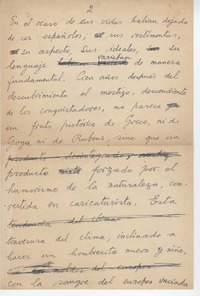 2
En el ocaso de sus vidas habían dejado
de ser españoles, sus vestimentas,
su aspecto, sus ideales, su
lenguaje variaban de manera
fundamental. Cien años después del
descubrimiento el mestizo, descendiente
de los conquistadores, no parece
un fruto pictórico de Greco, ni de
Goya ni de Rubens, sino que un
producto forzado por el
humorismo de la naturaleza, con-
vertida en caricaturista. Esta
travesura del clima, inclinado a
hacer un hombrecito nuevo y niño,
con la sangre del europeo vaciada